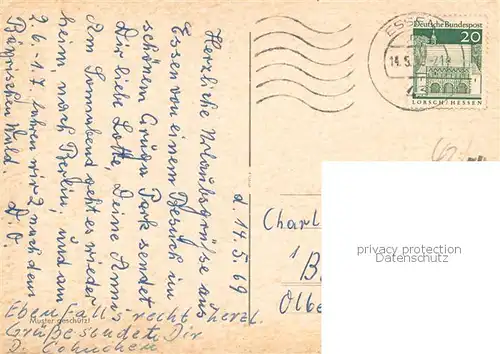 d. 14.5.69
Herzliche Urlaubsgrüße aus
Essen von einem Besuch im
schönem Gruga Park sendet
Dir liebe Lotte, Deine Anni
Am Sonnabend geht es wieder
heim, nach Berlin, und am
26.1.7. fahren wir 2 nach dem
Bayrischen Wald. D. O.
Ebenfalls recht herzl.
Grüße sendet Dir
D.
Muster geschützt
ESSEN
14.5.
Deutsche Bundespost
20
LORSCH/HESSEN
Charl
B
Olbe
privacy protection
Datenschutz